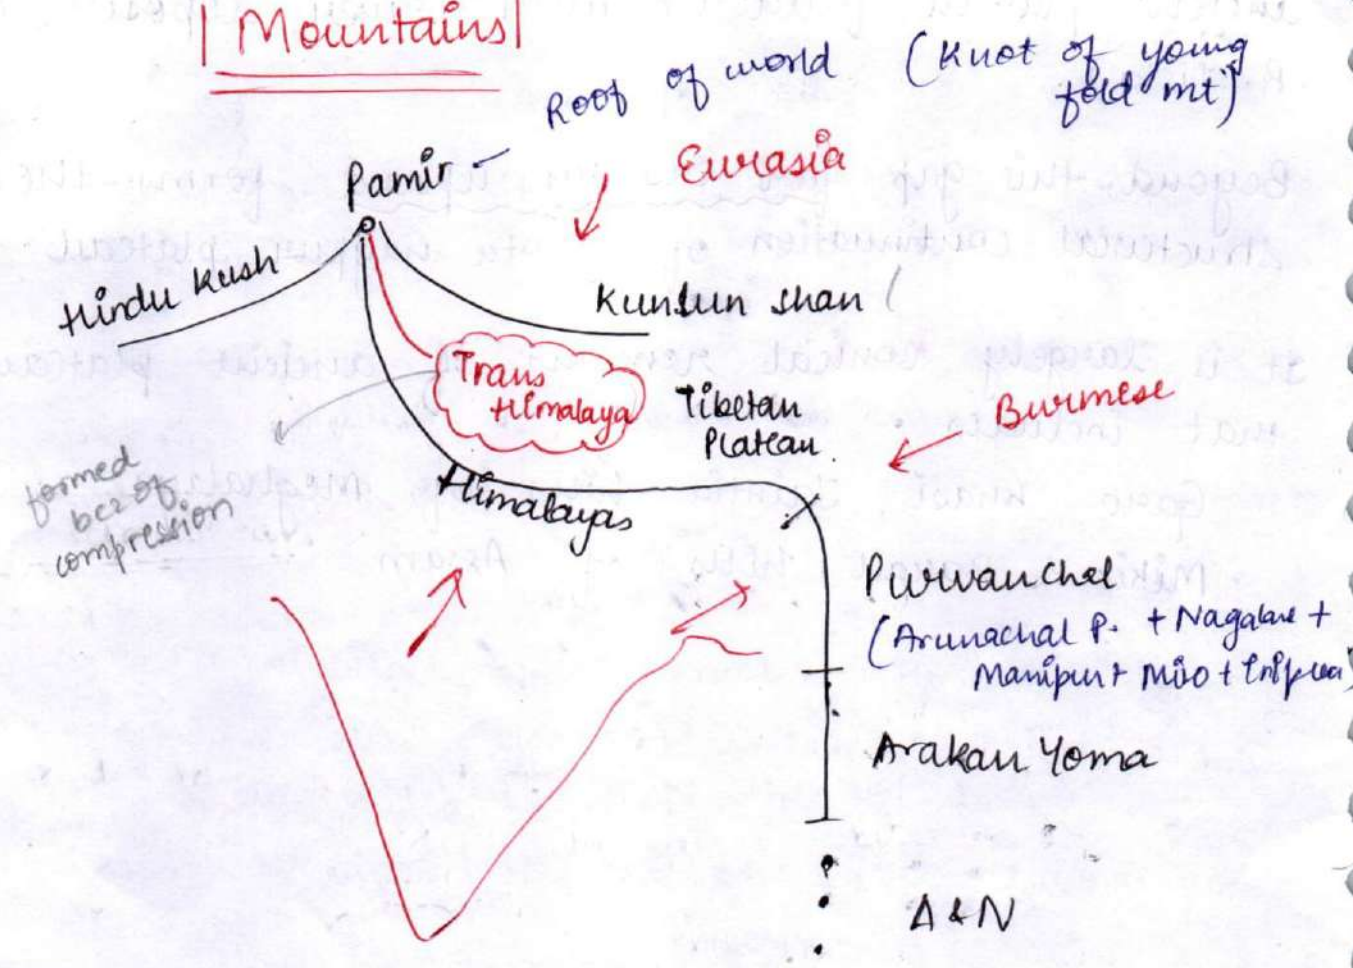 Mountains
Roof of world (Knot of young
fold mt)
Pamir
Eurasia
Hindu Kush
Kunlun Shan (
Trans
Himalaya
Tibetan
Plateau
Burmese
Himalayas
formed
bcz of
compression
Purvanchal
(Arunachal P. + Nagaland +
Manipur + Mizo + Tripura)
Arakan Yoma
A & N